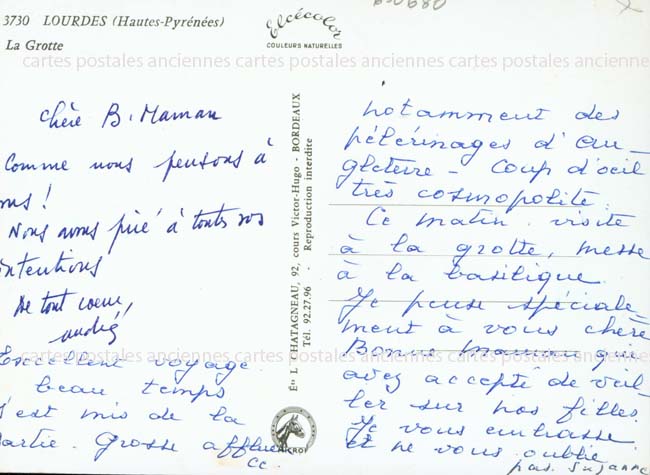 3730 LOURDES (Hautes-Pyrénées)
La Grotte
Elcécolor
COULEURS NATURELLES
cartes postales anciennes cartes postales anciennes cartes postales anciennes
chère B. Maman
Comme nous pensons à
ous !
Nous avons prié à toutes vos
intentions
De tout coeur,
andré
Excellent voyage
beau temps
s'est mis de la
partie. Grosse affluen
ce
Ets L. CHATAGNEAU, 92, cours Victor-Hugo - BORDEAUX
Tél. 92.27.96 - Reproduction interdite
notamment des
pélérinages d'An-
gleterre - Coup d'oeil
très cosmopolite.
Ce matin visite
à la grotte, messe
à la basilique.
Je pense spéciale
ment à vous chère
Bonne maman qui
avez accepté de veil
ler sur nos filles.
Je vous embrasse
et ne vous oublie
pas. Suzanne
cartes postales anciennes cartes postales anciennes cartes postales anciennes